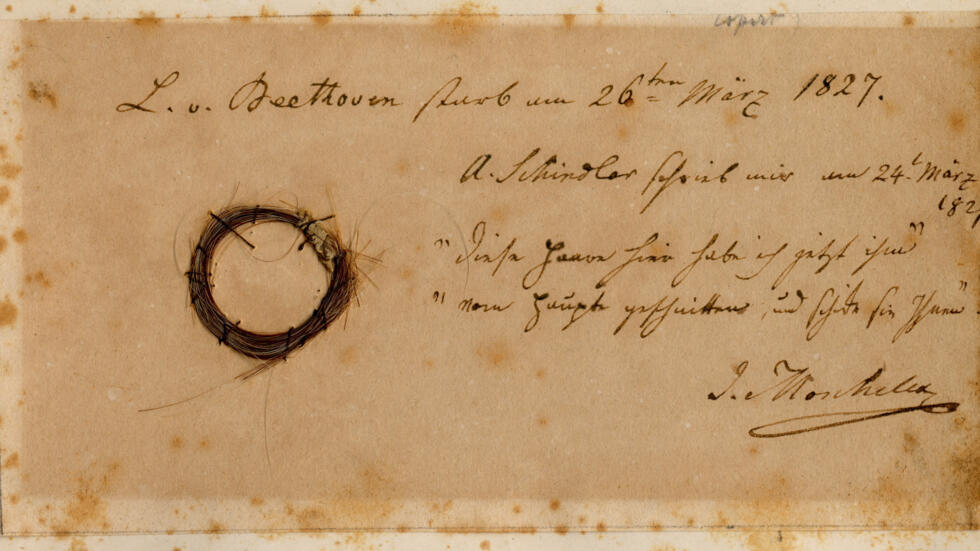 copirt
L. v. Beethoven starb am 26ten März 1827.
A. Schindler schrieb mir am 24t März
182
"Diese Haare hier habe ich jetzt ihm"
"vom Haupte geschnitten, und schicke sie Ihnen".
I. Moscheles